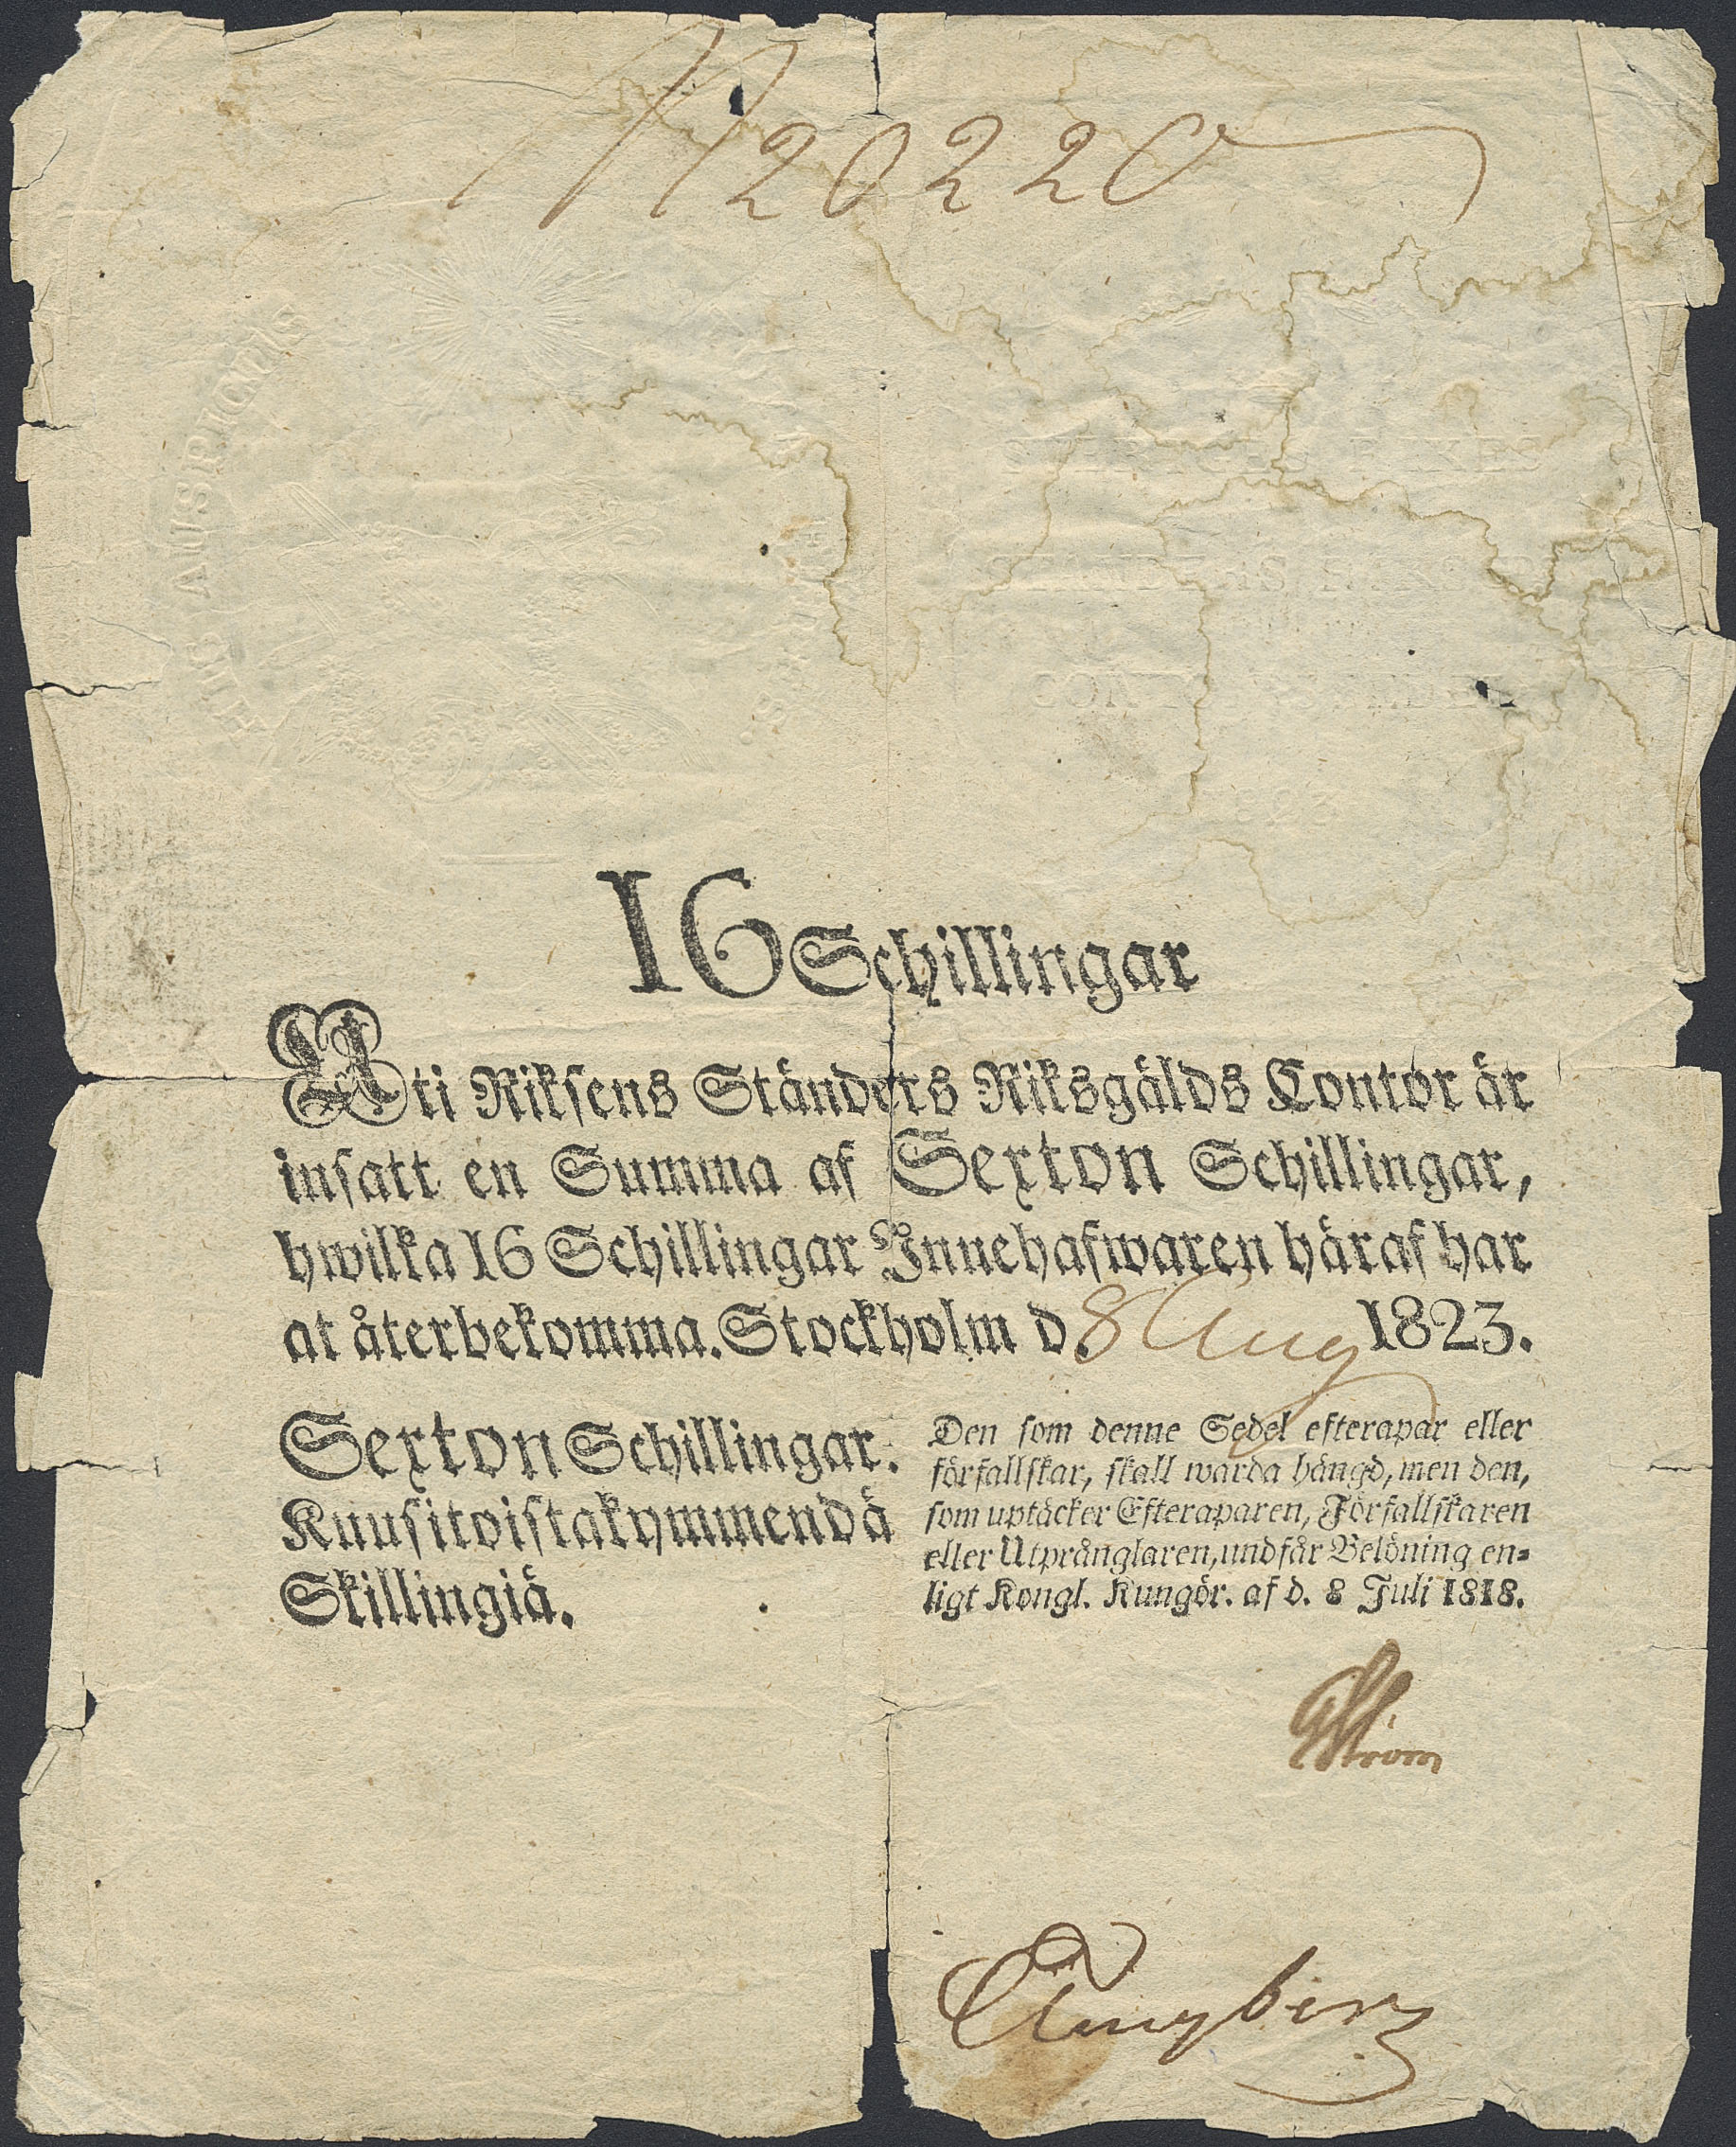 N 20220
HIS AUSPICIIS
SVERIGES RIKES
STÄNDERS RIKSG
CONTO SSEDEL
1823
16 Schillingar
Uti Riksens Ständers Riksgälds Contor är
insatt en Summa af Sexton Schillingar,
hwilka 16 Schillingar Innehafwaren häraf har
at återbekomma. Stockholm d. 8 Aug 1823.
Sexton Schillingar.
Kuusitoistakymmendä
Skillingiä.
Den som denne Sedel efterapar eller
förfallskar, skall warda hängd, men den,
som uptäcker Efteraparen, Förfallskaren
eller Utprånglaren, undfår Belöning en=
ligt Kongl. Kungör. af d. 8 Juli 1818.